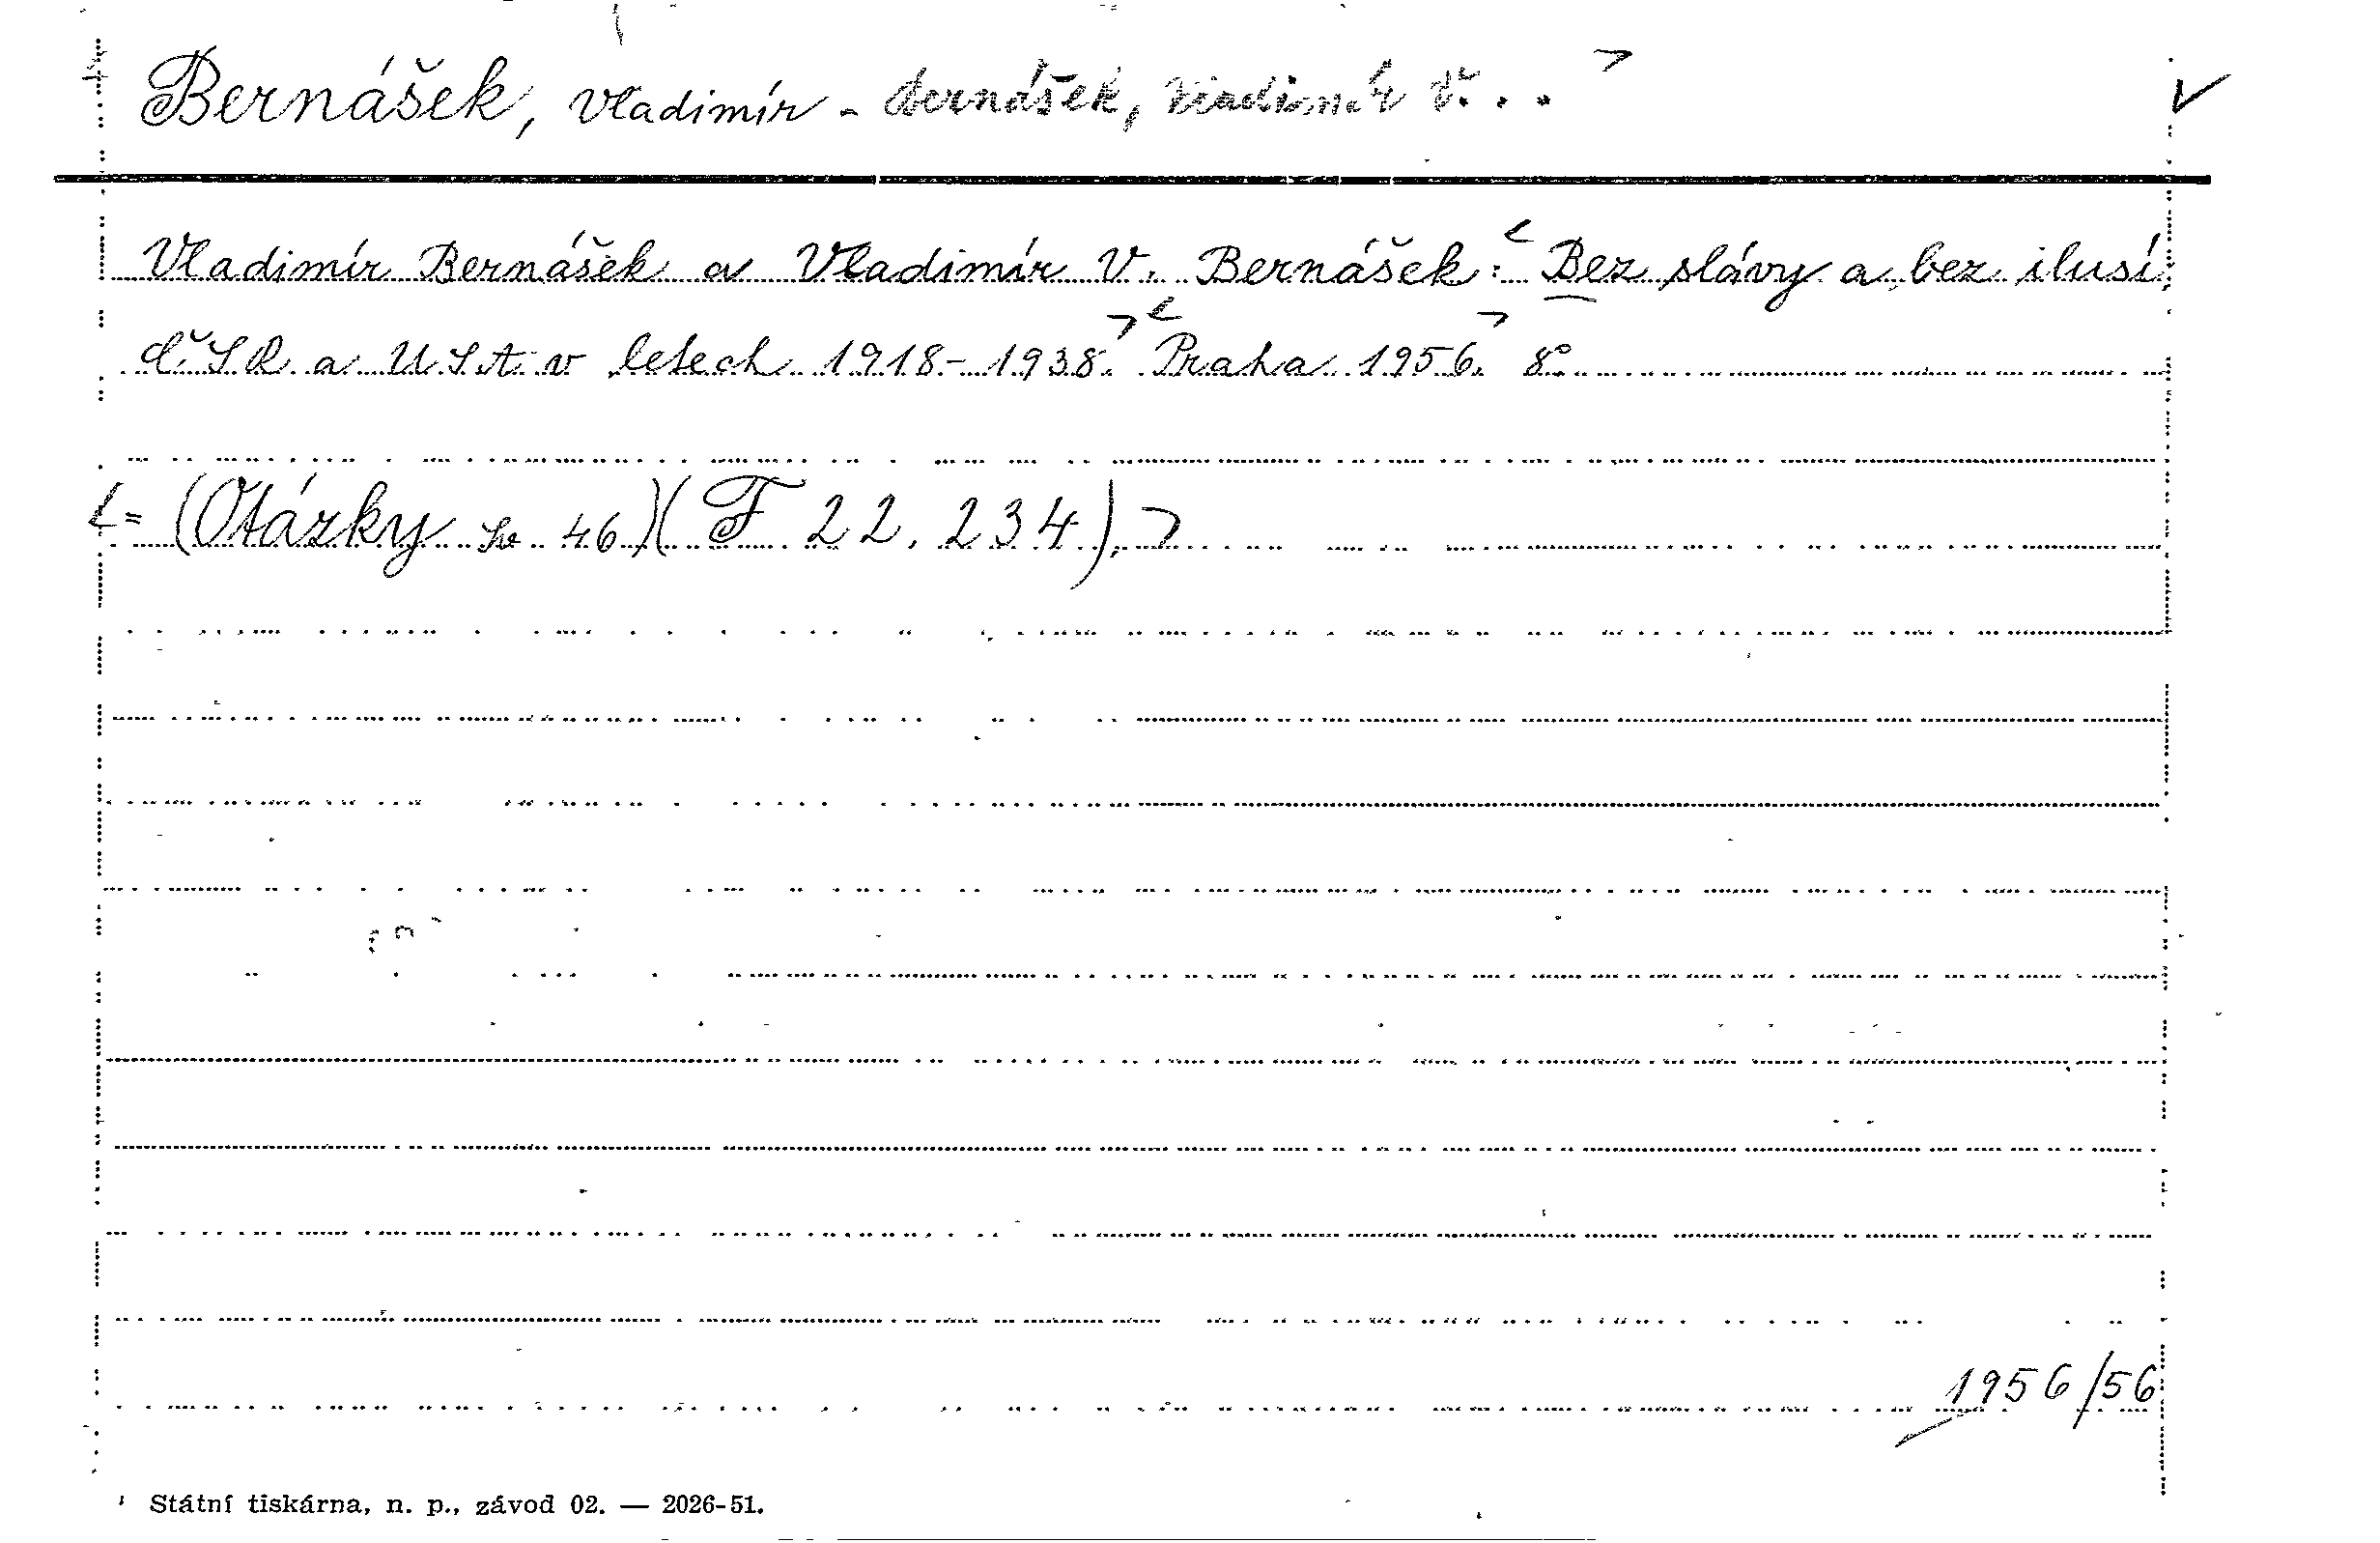 Bernášek, Vladimír - Bernášek, Vladimír V. . .
Vladimír Bernášek a Vladimír V. Bernášek: Bez slávy a bez ilusí,
ČSR a USA v letech 1918-1938. Praha 1956. 8°
= (Otázky sv. 46) (F 22.234).
1956/56
Státní tiskárna, n. p., závod 02. — 2026-51.